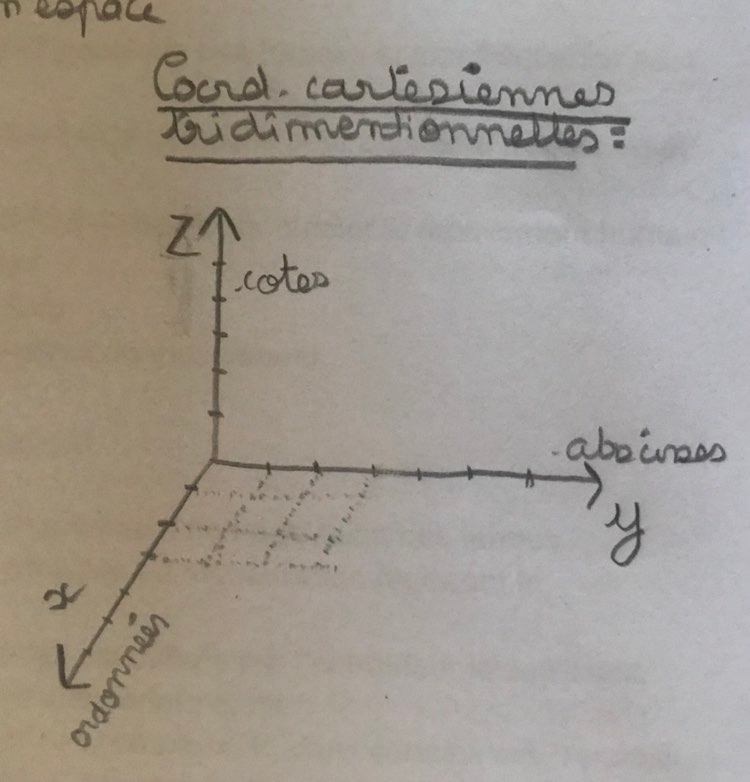 n espace
Coord. cartésiennes
tridimentionnelles :
Z
cotes
abscisses
y
x
ordonnées